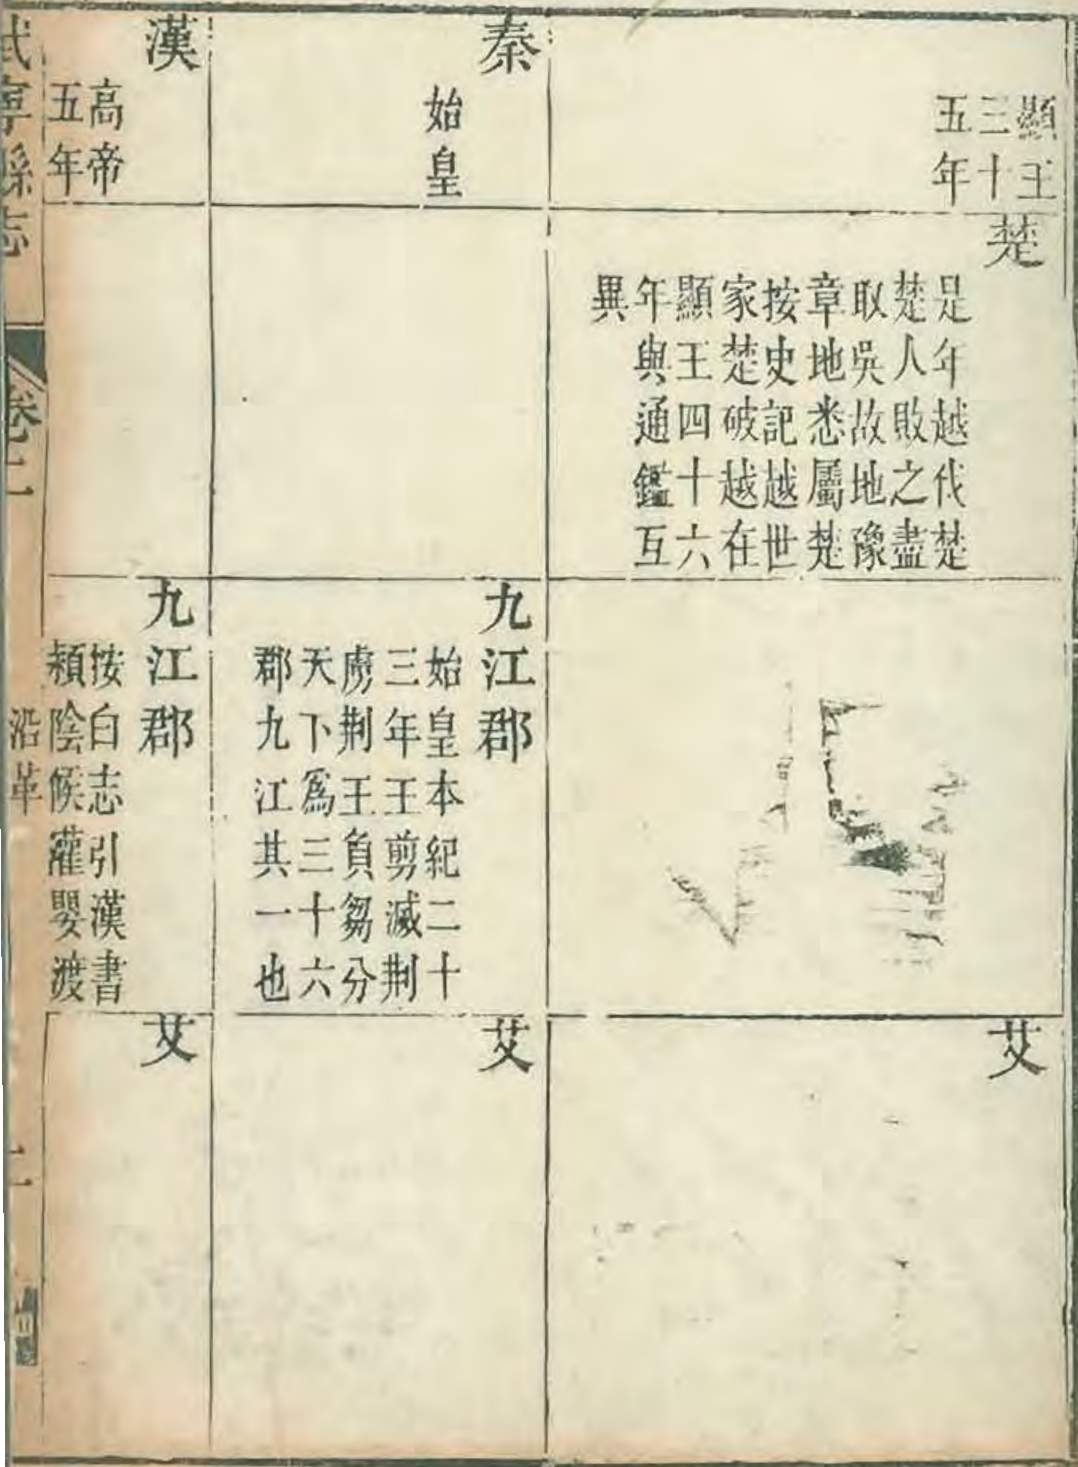 顯王
三十
五年
楚
是年越伐楚
楚人敗之盡
取吳故地豫
章地悉屬楚
按史記越世
家楚破越在
顯王四十六
年與通鑑互
異
艾
秦
始皇
九江郡
始皇本紀二十
三年王剪滅荆
虜荆王負芻分
天下爲三十六
郡九江其一也
艾
漢
高帝
五年
九江郡
按白志引漢書
潁陰侯灌嬰渡
艾
武寧縣志
卷二
沿革
二